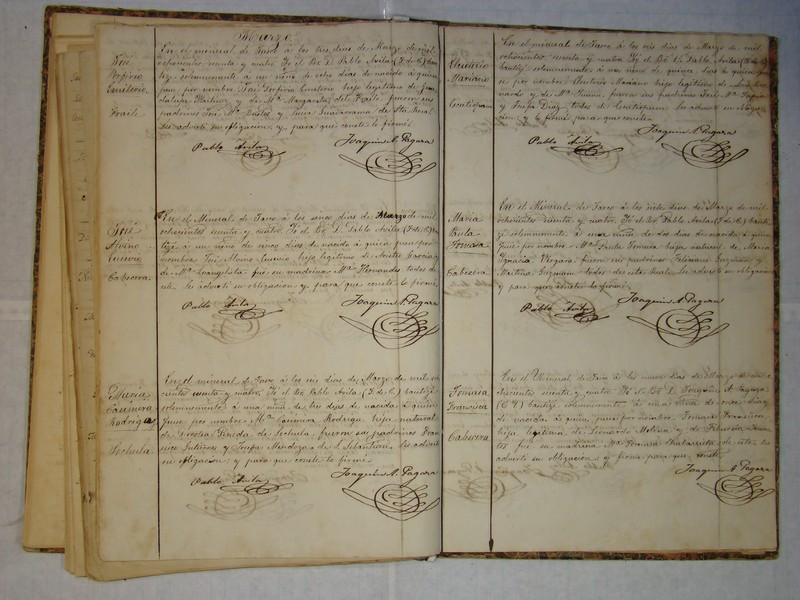 Marzo
José
Porfirio
Emiterio.
Fraile.
En el mineral de Taxco á los tres dias de Marzo de mil
ochocientos setenta y cuatro Yo el Br. D. Pablo Avila (T. de C.) bau
tizé solemnemente á un niño de ocho dias de nacido á quien
puse por nombre José Porfirio Emeterio hijo legitimo de Gua
dalupe Martinez y de Ma. Margarita del Fraile fueron sus
padrinos José Ma. y de Sta. Rosa
les advertí su obligacion y para que conste lo firmé.
Pablo Avila
Joaquin A. Pagaza
José
Alvino
Eusevio
Cabecera.
En el Mineral de Taxco á los cinco dias de Marzo de mil
ochocientos setenta y cuatro. Yo el Br. D. Pablo Avila (T. de C.) bau
tizé á un niño de cinco dias de nacido á quien puse por
nombre José Alvino Eusevio hijo legitimo de Garcia y
de Ma. Evangelista fue su madrina Ma. Fernandes todos de
esta les advertí su obligacion y para que conste lo firmé.
Pablo Avila
Joaquin A. Pagaza
Maria
Casimira
Rodriga
Sochula.
En el mineral de Taxco á los seis dias de Marzo de mil
cientos setenta y cuatro, Yo el Br. Pablo Avila (T. de C.) bautizé
solemnemente á una niña de tres dias de nacida á quien
puse por nombre Ma. Casimira Rodriga hija natural
de Teresa Pineda de Sochula, fueron sus padrinos Fran
cisco Gutierres y Josefa Mendoza de S. Sebastian les advertí
su obligacion y para que conste lo firmé.
Pablo Avila
Joaquin A. Pagaza
Eleuterio
Mariano
En el mineral de Taxco á los seis dias de Marzo de mil
ochocientos setenta y cuatro Yo el Br. D. Pablo Avila (T. de C.)
bautizé solemnemente á un niño de quince dias á quien pu
se por nombre Eleuterio Mariano hijo legitimo de
y de Ma. fueron sus padrinos José Ma.
y Josefa Diaz todos de les advertí su obliga
cion y lo firmé para que conste.
Pablo Avila
Joaquin A. Pagaza
Maria
Paula
Tomasa
Cabecera
En el Mineral de Taxco á los siete dias de Marzo de mil
ochocientos setenta y cuatro, Yo el Br. Pablo Avila (T. de C.) bauti
zé solemnemente á una niña de dos dias de nacida á quien
puse por nombre Ma. Paula Tomasa hija natural de Maria
Ygnacia Vergara fueron sus padrinos Feliciano Guzman y
Martina Guzman todos de esta les advertí su obligacion
y para que conste lo firmé.
Pablo Avila
Joaquin A. Pagaza
Tomasa
Francisca
Cabecera.
En el Mineral de Taxco á los nueve dias de Marzo de mil o
chocientos setenta y cuatro, Yo el Br. D. Joaquin A. Pagaza
bautizé solemnemente á una niña de once dias
de nacida á quien puse por nombre Tomasa Francisca
hija legitima de Leonardo Molina y de
fue su madrina Ma. de esta les
advertí su obligacion y firmé para que conste.
Joaquin A. Pagaza